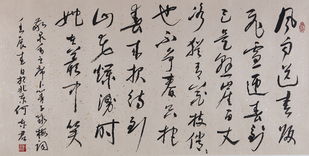 風雨送春歸
飛雪迎春到
已是懸崖百丈
冰猶有花枝俏
也不爭春只把
春來報待到
山花爛漫時
她在叢中笑
敬录毛主席卜算子咏梅詞
壬辰春日於北京何